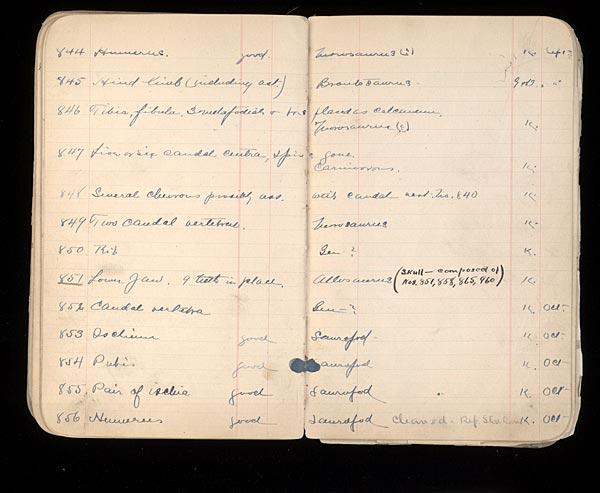 844 Humerus. good. Morosaurus (?) K. Sept 13
845 Hind limb (including ast.) Brontosaurus G & B. "
846 Tibia, fibula, 3 metapodials & calcaneum.
Morosaurus (?) K.
847 Five or six caudal centra, spines gone.
Carnivorous. K.
848 Several chevrons possibly ass. with caudal vert. No. 840 K.
849 Two caudal vertebrae. Morosaurus K.
850 Rib Gen-? K.
851 Lower Jaw. 9 teeth in place. Allosaurus (Skull - composed of
Nos. 851, 858, 865, 960) K.
852 Caudal vertebra Gen-? K. Oct-
853 Ischium good Sauropod- K. Oct-
854 Pubis good Sauropod K. Oct-
855 Pair of ischia good Sauropod K. Oct-
856 Humerus good Sauropod Cleaned- K. Oct-